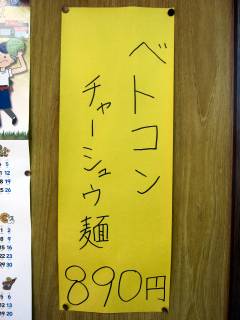 ベトコン
チャーシュウ麺
890円